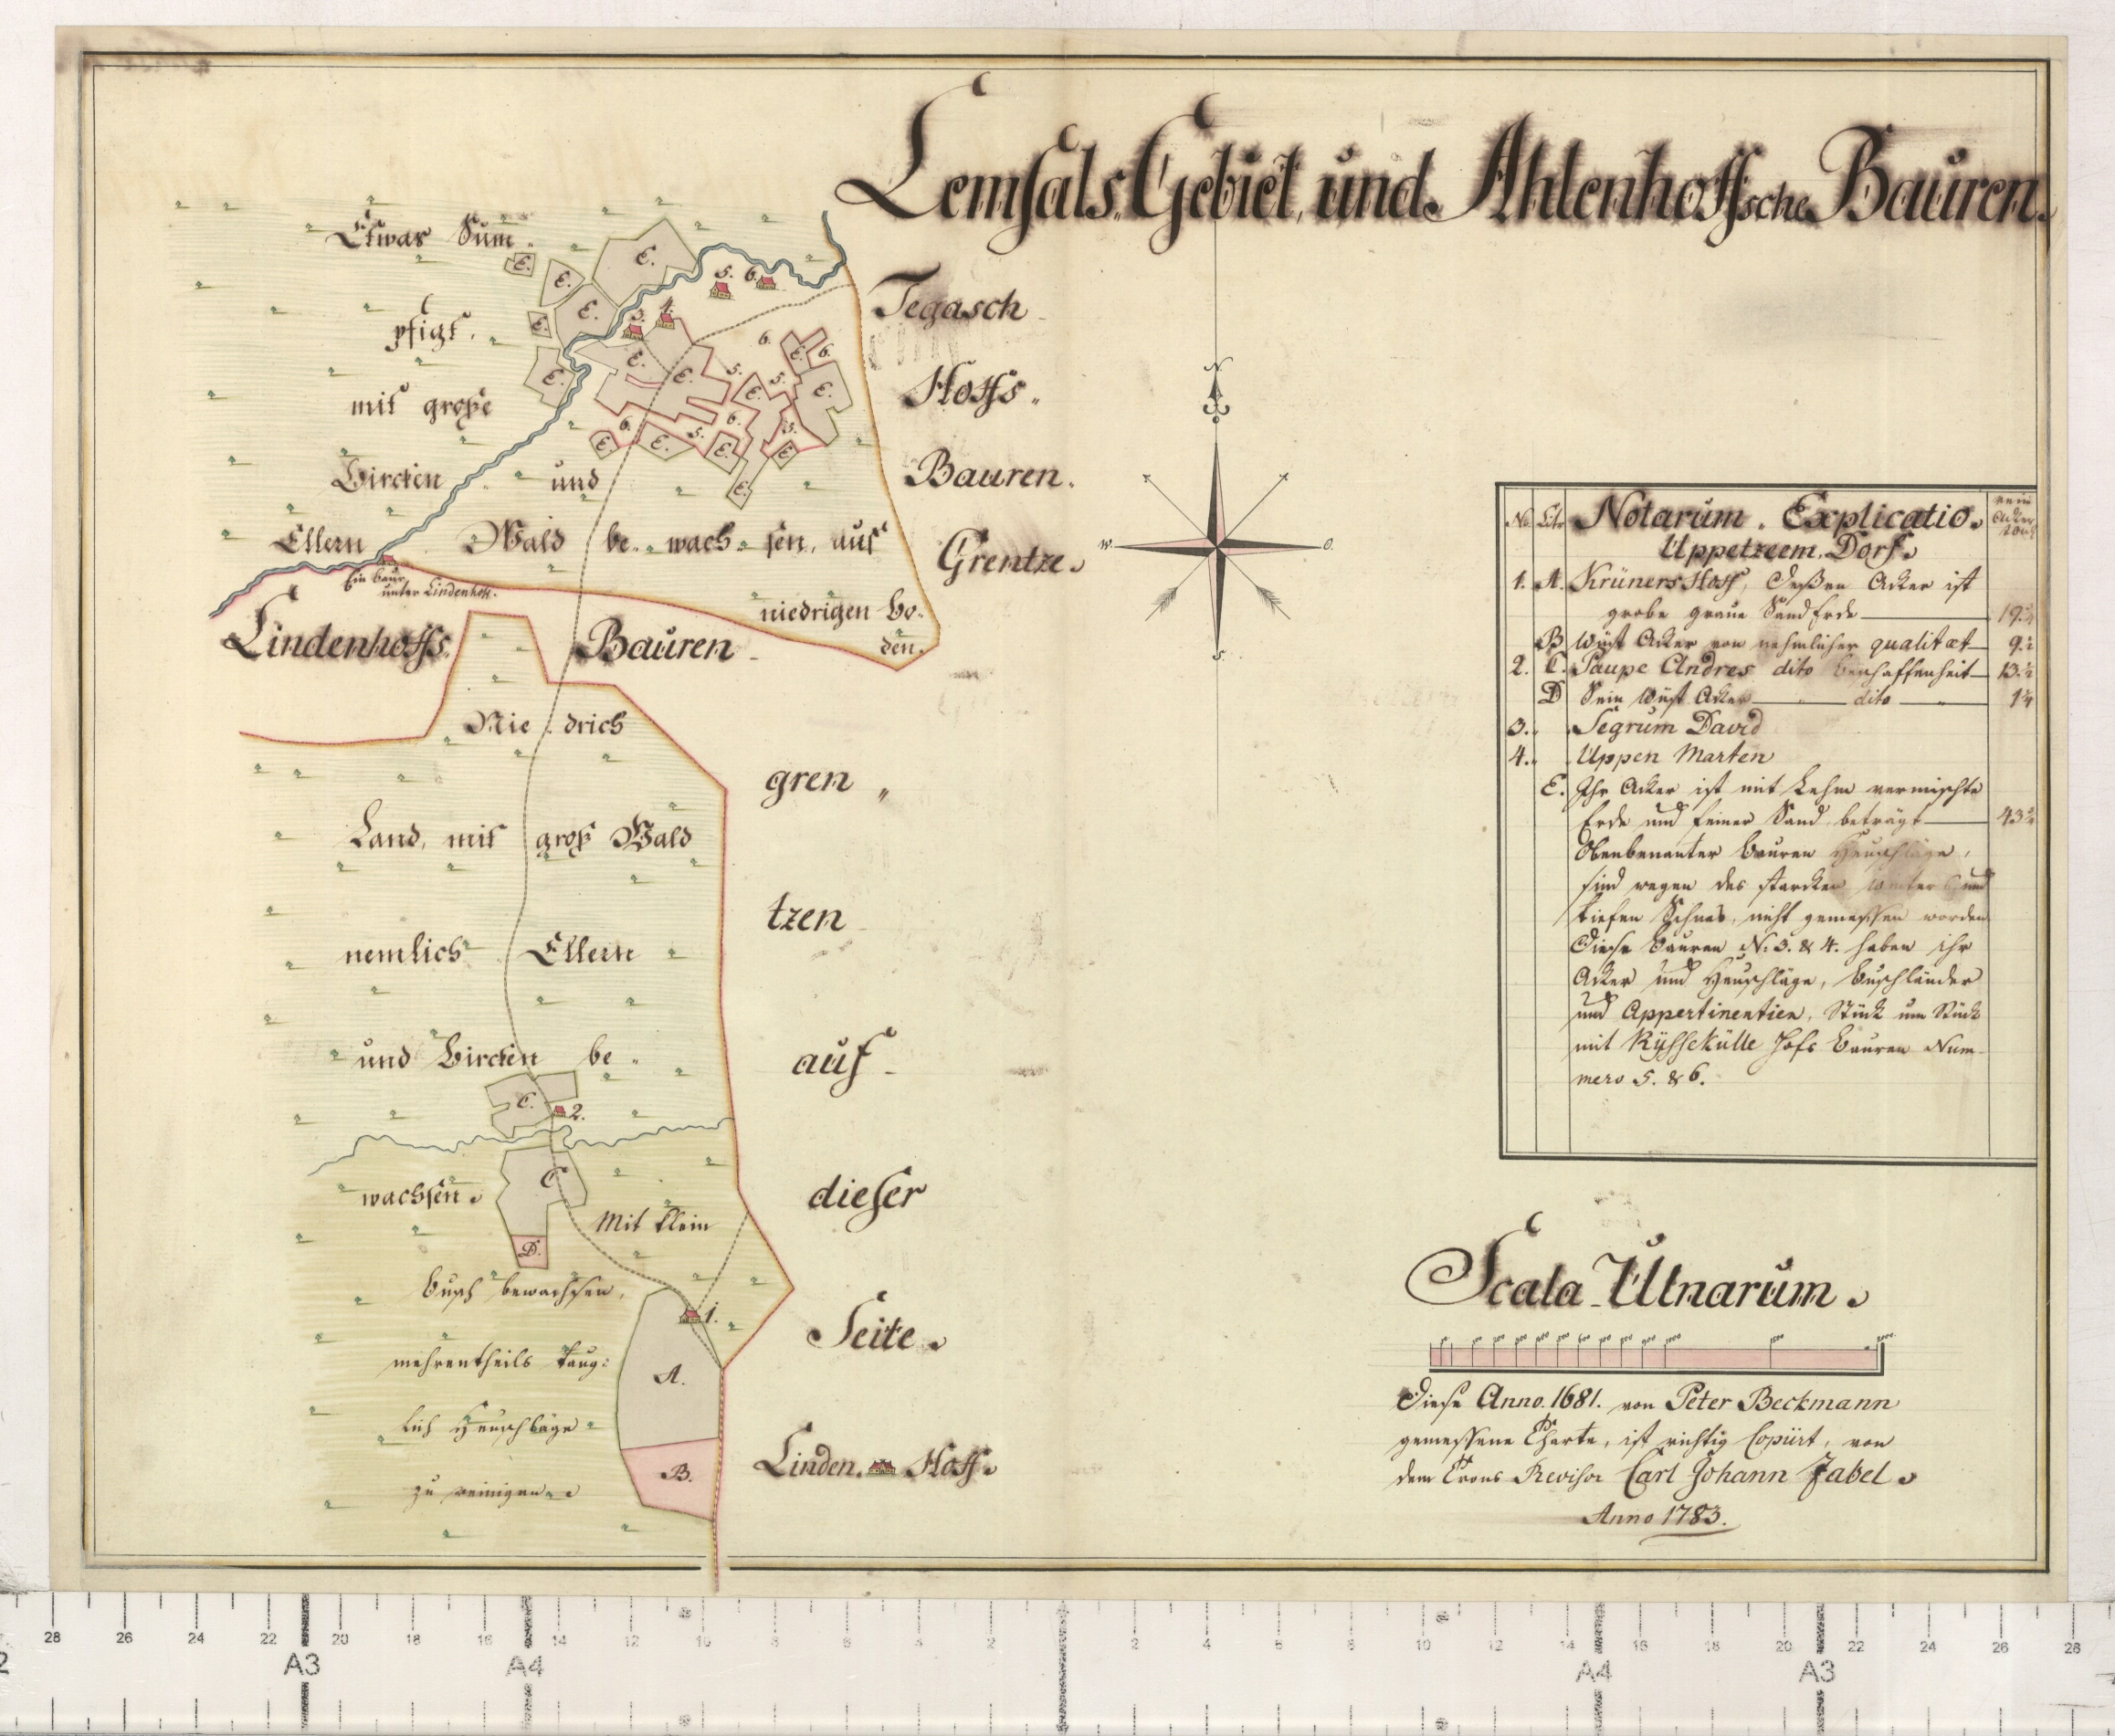 Lemsals Gebiet, und Ahlenhoffsche Bauren.
Etwas Sum-
pfigt,
mit große
Bircken und
Ellern Wald be- wach- sen, auf
niedrigen Bo-
den.
E. E. E. E. E. E. E. E. E. E. E. E. E. E. E. E.
3. 4. 5. 6.
6. 6. 5. 5. 6. 5. 6. 5.
Ein Baur
unter Lindenhoff.
Tegasch
Hoffs
Bauren.
Grentze.
Lindenhoffs Bauren
Nie- drich
Land, mit groß Wald
nemlich Ellern
und Bircken be-
C. 2.
wachsen.
C
D.
Mit klein
Busch bewachsen,
mehrentheils taug-
lich Heuschläge
zu reinigen
1.
A.
B.
gren„
tzen
auf
dieser
Seite.
Linden. Hoff.
N
W. O.
S.
No. Litr. Notarum. Explicatio.
Uppetzeem. Dorf.
1. A. Krüners Hoff, Deßen Acker ist
grobe graue Sand Erde
B Wüst Acker von nehmlicher qualitæt
2. C. Paupe Andres dito beschaffenheit
D Sein Wüst Acker dito
3. Segrum David
4. Uppen Marten
E. Ihr Acker ist mit Lehm vermischte
Erde und feiner Sand, beträgt
Obenbenanter Bauren Heuschläge,
sind wegen des starcken Winters und
tiefen Schnees, nicht gemeßen worden
Diese Bauren N: 3. & 4. haben ihr
Acker und Heuschläge, Buschländer
und Appertinentien, Stück um Stück
mit Kyssekülle Hofs Bauren Num-
mero 5. & 6.
Scala Ulnarum.
Diese Anno. 1681. von Peter Beckmann
gemeßene Charte, ist richtig Copiirt, von
dem Crons Revisor Carl Johann Jabel.
Anno 1783.
28 26 24 22 20 18 16 14 12 10 8 6 4 2 2 4 6 8 10 12 14 16 18 20 22 24 26 28
A3 A4 A4 A3